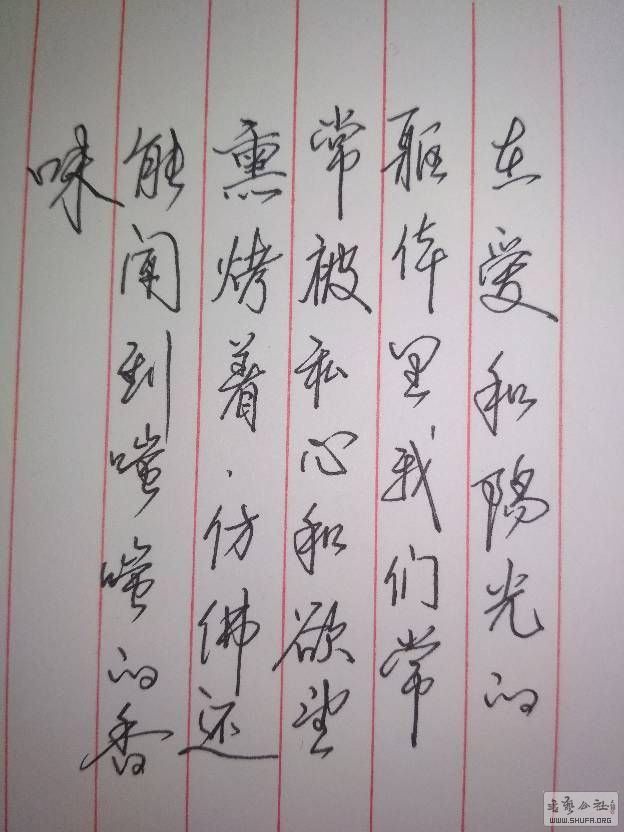 在爱和陽光的
躯体里我们常
常被私心和欲望
熏烤着.仿佛还
能闻到嗞嗞的香
味
WWW.SHUFA.ORG